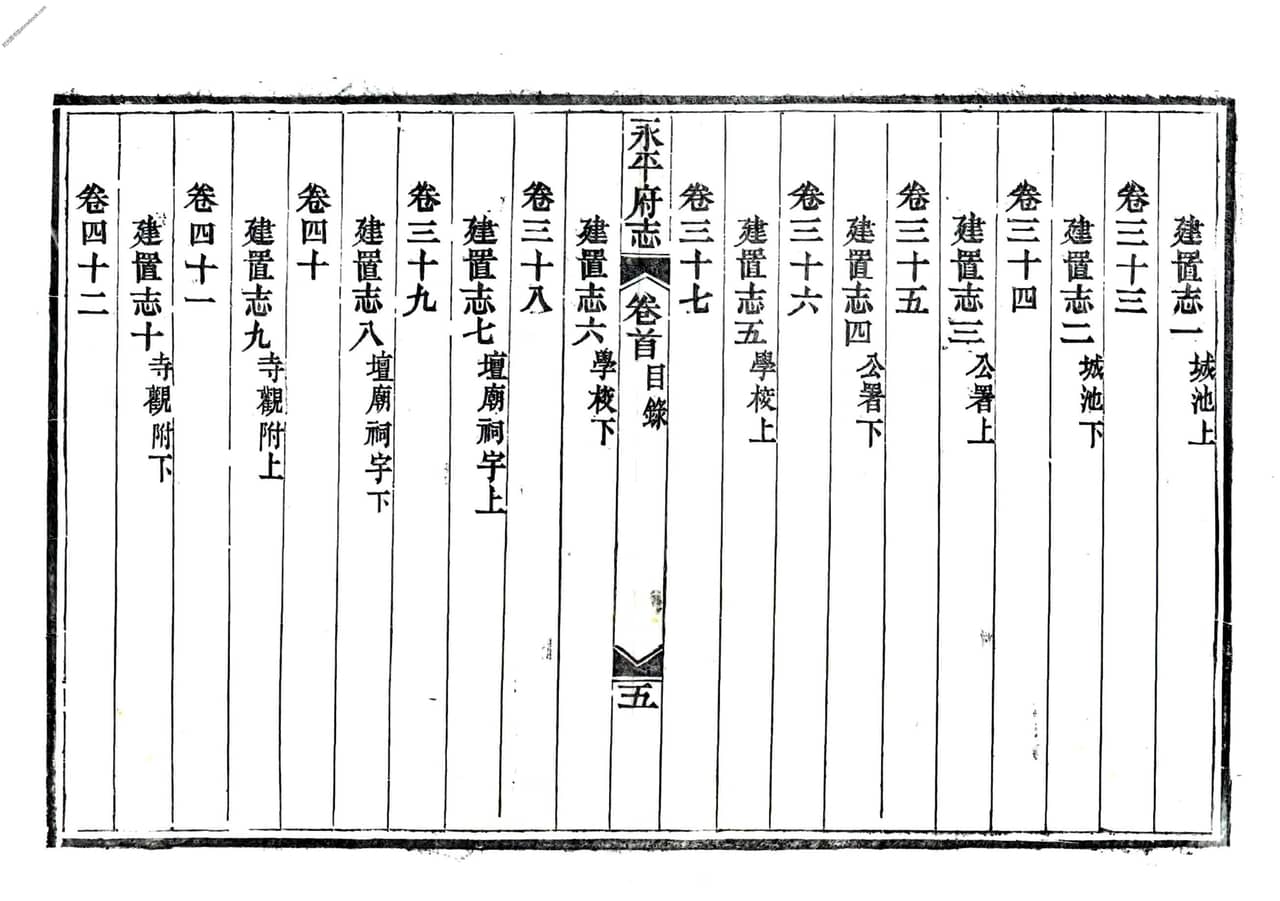 建置志一 城池上
卷三十三
建置志二 城池下
卷三十四
建置志三 公署上
卷三十五
建置志四 公署下
卷三十六
建置志五 學校上
卷三十七
永平府志 卷首 目錄 五
建置志六 學校下
卷三十八
建置志七 壇廟祠宇上
卷三十九
建置志八 壇廟祠宇下
卷四十
建置志九 寺觀附上
卷四十一
建置志十 寺觀附下
卷四十二